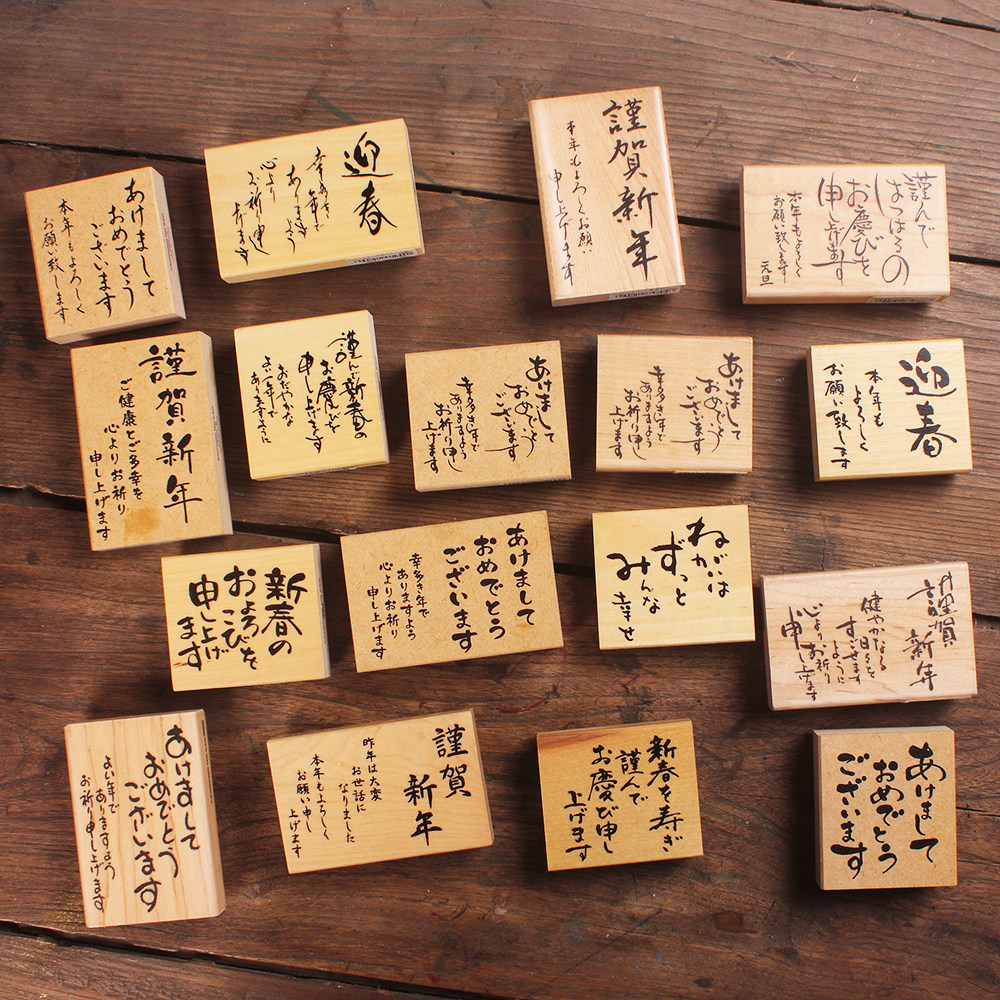 あけまして
おめでとう
ございます
本年もよろしく
お願い致します
迎春
幸多き年で
ありますよう
心より
お祈り申し
上げます
謹賀新年
本年もよろしくお願い
申し上げます
謹んで
はつはるの
お慶びを
申し上げます
本年もよろしく
お願い致します
元旦
謹賀新年
ご健康とご多幸を
心よりお祈り
申し上げます
謹んで新春の
お慶びを
申し上げます
おだやかな
よい一年で
ありますように
あけまして
おめでとう
ございます
幸多き年で
ありますよう
お祈り申し
上げます
あけまして
おめでとう
ございます
幸多き年で
ありますよう
お祈り申し
上げます
迎春
本年も
よろしく
お願い致します
新春の
およろ
こびを
申し上げ
ます
あけまして
おめでとう
ございます
幸多き年で
ありますよう
心よりお祈り
申し上げます
ねがいは
ずっと
みんな
幸せ
謹賀
新年
健やかなる
日々を
すごせます
ように
心よりお祈り
申し上げます
あけまして
おめでとう
ございます
よい年で
ありますよう
お祈り申し上げます
謹賀
新年
昨年は大変
お世話に
なりました
本年もよろしく
お願い申し
上げます
新春を寿ぎ
謹んで
お慶び申し
上げます
あけまして
おめでとう
ございます